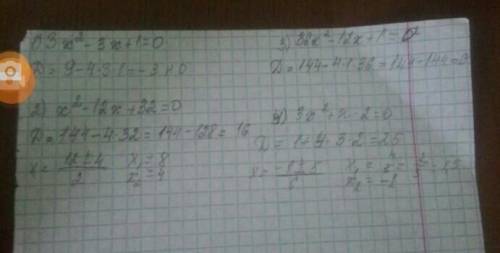 3x² - 3x + 1 = 0
D = 9 - 4·3·1 = -3 < 0
2) x² - 12x + 32 = 0
D = 144 - 4·32 = 144 - 128 = 16
x = 12 ± 4 / 2 x₁ = 8
x₂ = 4
3) 36x² - 12x + 1 = 0
D = 144 - 4·1·36 = 144 - 144 = 0
4) 3x² + x - 2 = 0
D = 1 + 4·3·2 = 25
x = -1 ± 5 / 6 x₁ = 4/6 = 2/3
x₂ = -1